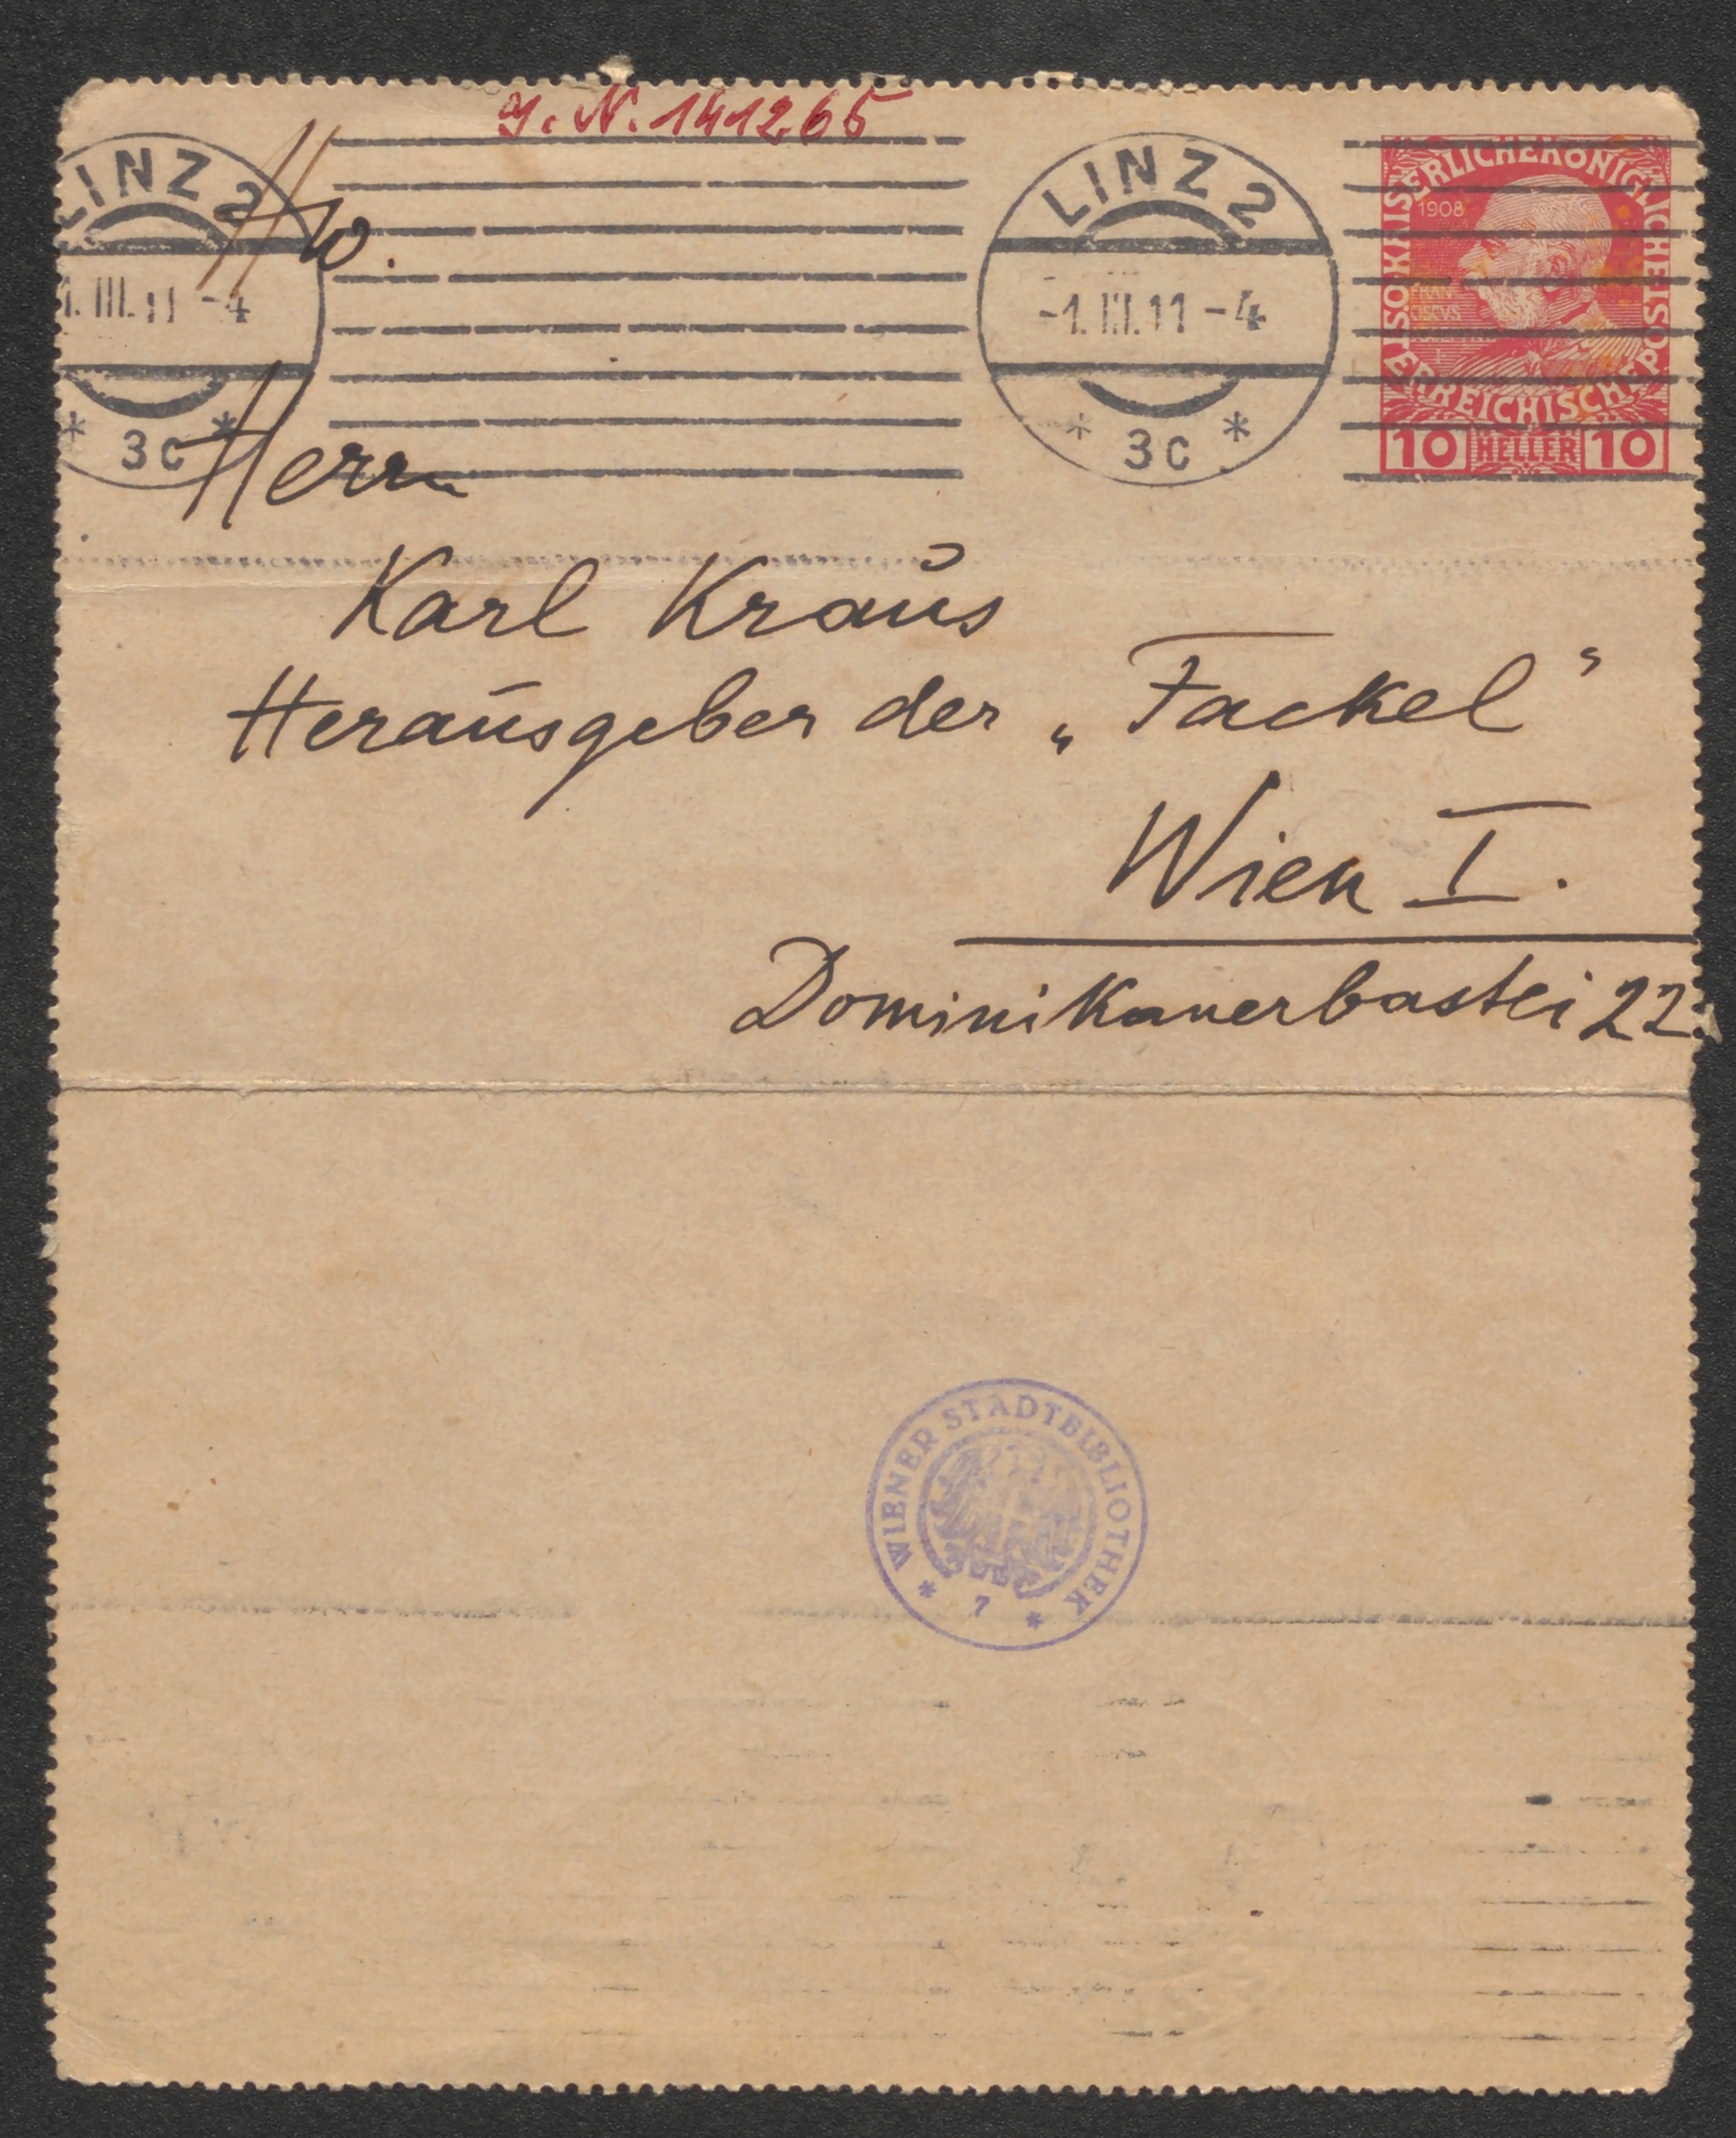 J. N. 141265
LINZ 2
1. III. 11 -4
* 3c *
LINZ 2
-1. III. 11 -4
* 3c *
KAISERLICHEKÖNIGLICHE
ÖSTERREICHISCHE POST
1908
FRAN
CISCVS
I
10 HELLER 10
Hw.
Herrn
Karl Kraus
Herausgeber der „Fackel“
Wien I.
Dominikanerbastei 22.
WIENER STADTBIBLIOTHEK
* 7 *